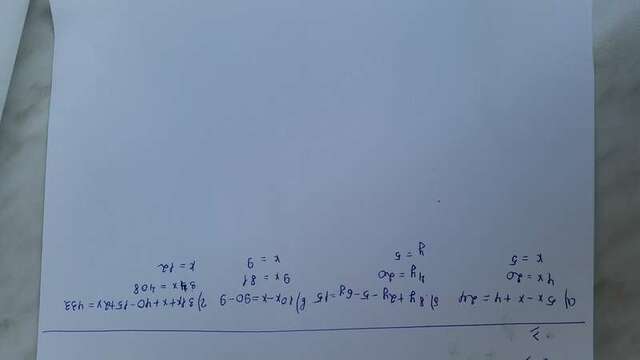 а) 5x - x + 4 = 24 б) 8y + 2y - 5 - 6y = 15 в) 10x - x = 90 - 9 г) 31x + x + 40 - 15 + 2x = 433
4x = 20 4y = 20 9x = 81 34x = 408
x = 5 y = 5 x = 9 x = 12